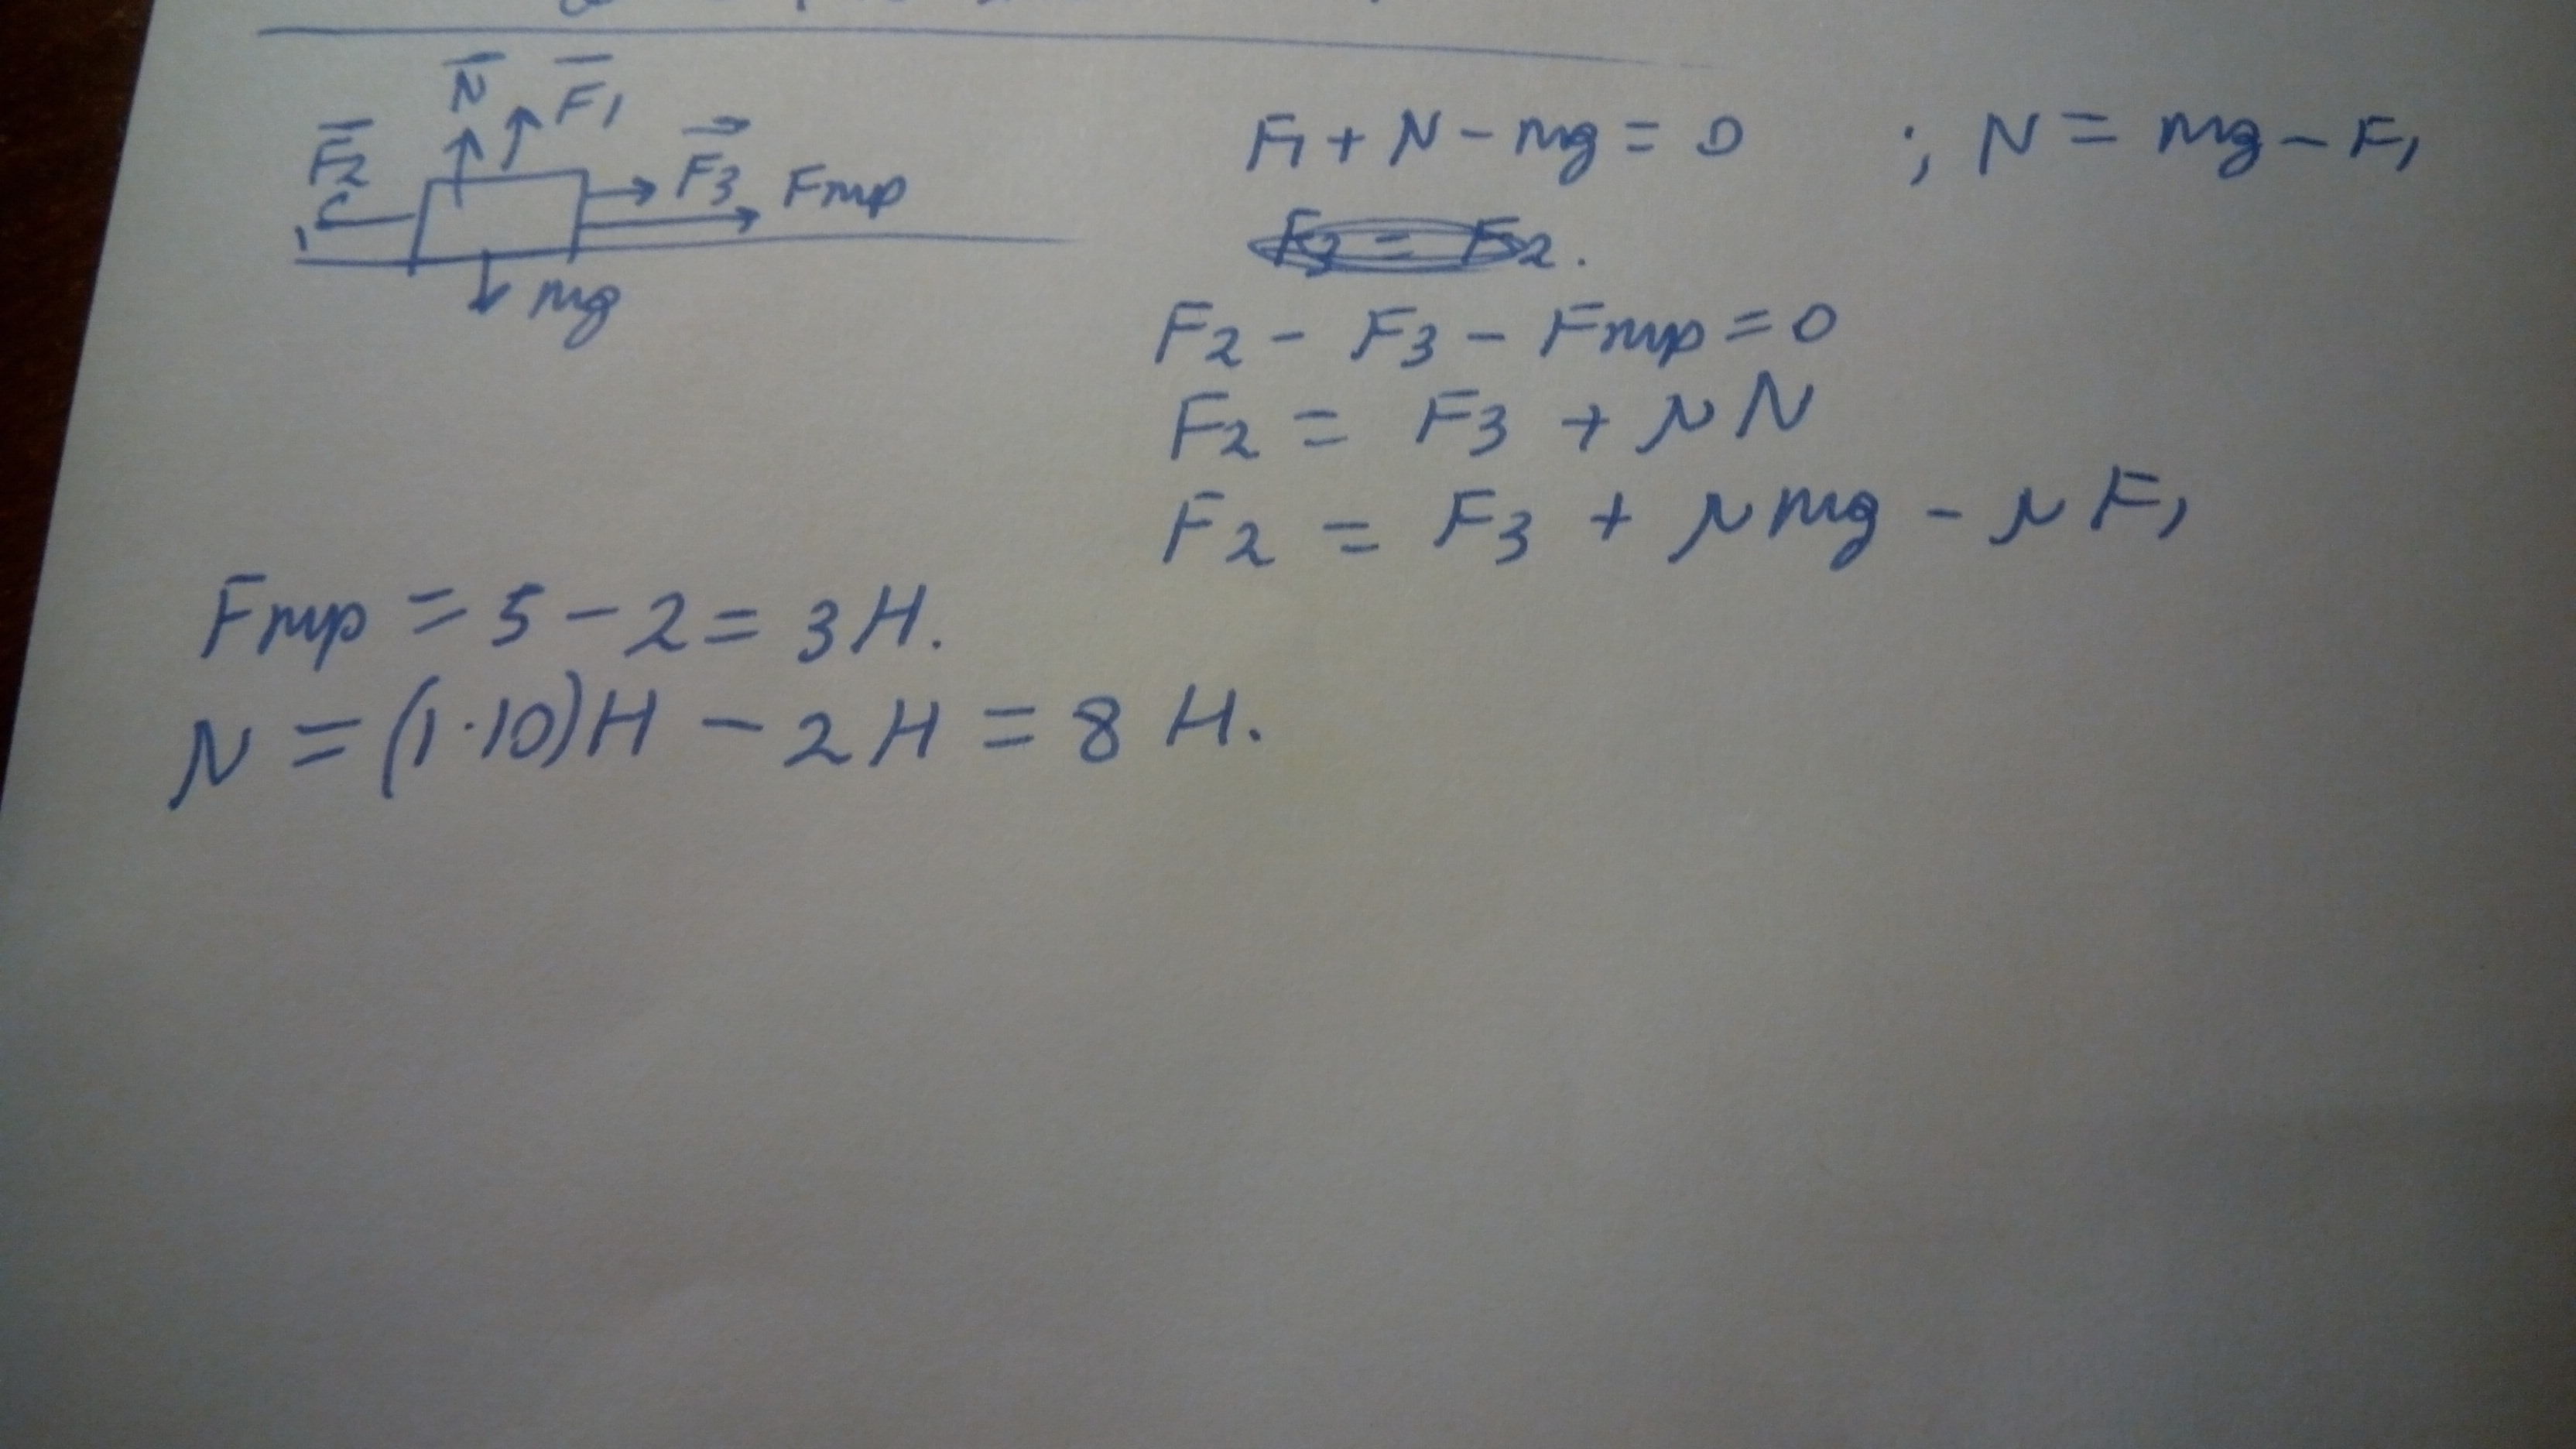 N F₁
F₂ F₃ Fтр
mg
F₁ + N - mg = 0 ; N = mg - F₁
F₃ = F₂.
F₂ - F₃ - Fтр = 0
F₂ = F₃ + μN
F₂ = F₃ + μmg - μF₁
Fтр = 5 - 2 = 3 Н.
N = (1·10)Н - 2 Н = 8 Н.